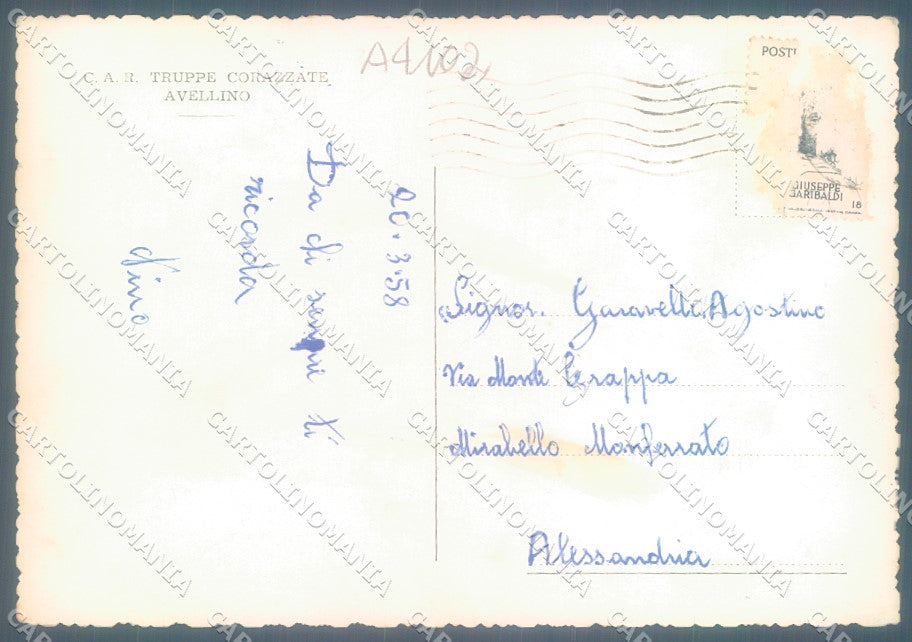 C. A. R. TRUPPE CORAZZATE
AVELLINO
A4102
POST
GIUSEPPE
GARIBALDI
18
20.3.58
Da chi sempre ti
ricorda
Dino
Signor. Garavelli Agostino
Via Monte Grappa
Mirabello Monferrato
Alessandria
CARTOLINOMANIA